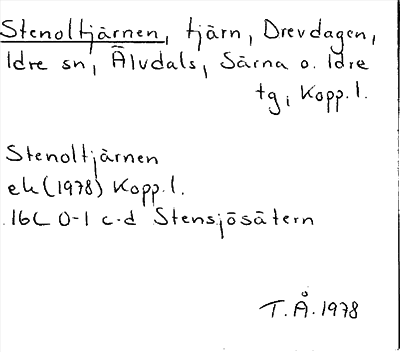 Stenoltjärnen, tjärn, Drevdagen,
Idre sn, Älvdals, Särna o. Idre
tg, Kopp. l.
Stenoltjärnen
ek (1978) Kopp. l.
16C 0-1 c-d Stensjösätern
T. Å. 1978